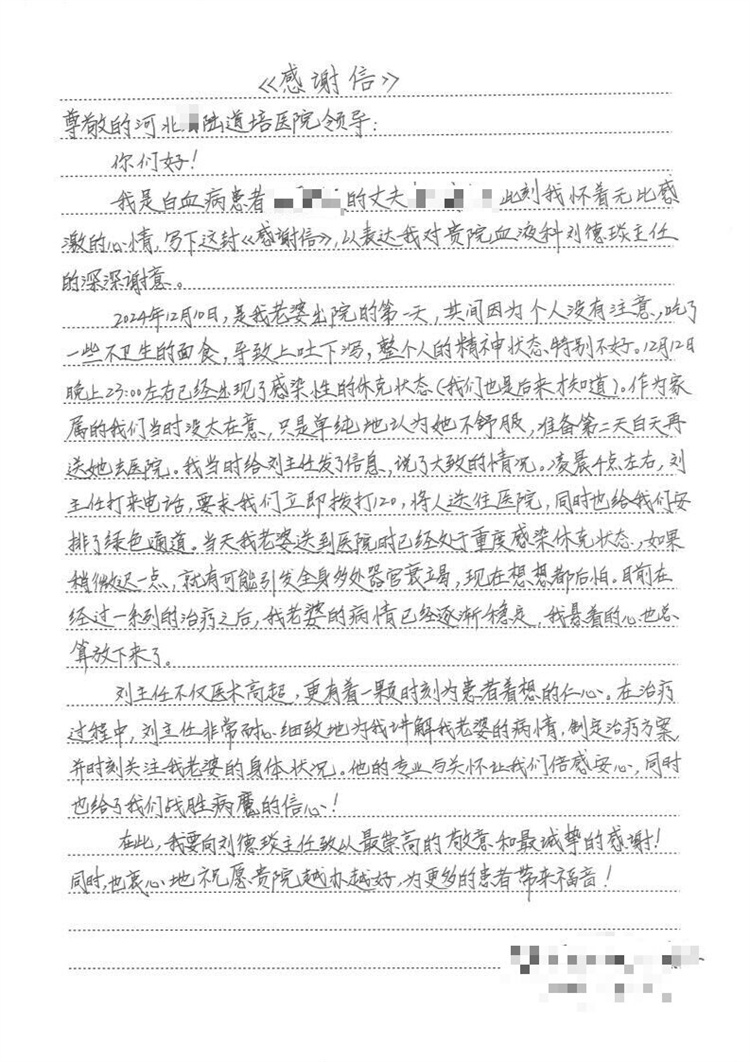 《感谢信》
尊敬的河北陆道培医院领导：
你们好！
我是白血病患者的丈夫此刻我怀着无比感
激的心情，写下这封《感谢信》，以表达我对贵院血液科刘德琰主任
的深深谢意。
2024年12月10日，是我老婆出院的第一天，共间因为个人没有注意，吃了
一些不卫生的面食，导致上吐下泻，整个人的精神状态特别不好。12月12日
晚上23:00左右已经出现了感染性的休克状态（我们也是后来才知道）。作为家
属的我们当时没太在意，只是单纯地认为她不舒服，准备第二天白天再
送她去医院。我当时给刘主任发了信息，说了大致的情况。凌晨4点左右，刘
主任打来电话，要求我们立即拨打120，将人送往医院，同时也给我们安
排了绿色通道。当天我老婆送到医院时已经处于重度感染休克状态，如果
稍微迟一点，就有可能引发全身多处器官衰竭，现在想想都后怕。目前在
经过一系列的治疗之后，我老婆的病情已经逐渐稳定，我悬着的心也总
算放下来了。
刘主任不仅医术高超，更有着一颗时刻为患者着想的仁心。在治疗
过程中，刘主任非常耐心细致地为我讲解我老婆的病情，制定治疗方案，
并时刻关注我老婆的身体状况。他的专业与关怀让我们倍感安心，同时
也给了我们战胜病魔的信心！
在此，我要向刘德琰主任致以最崇高的敬意和最诚挚的感谢！
同时，也衷心地祝愿贵院越办越好，为更多的患者带来福音！